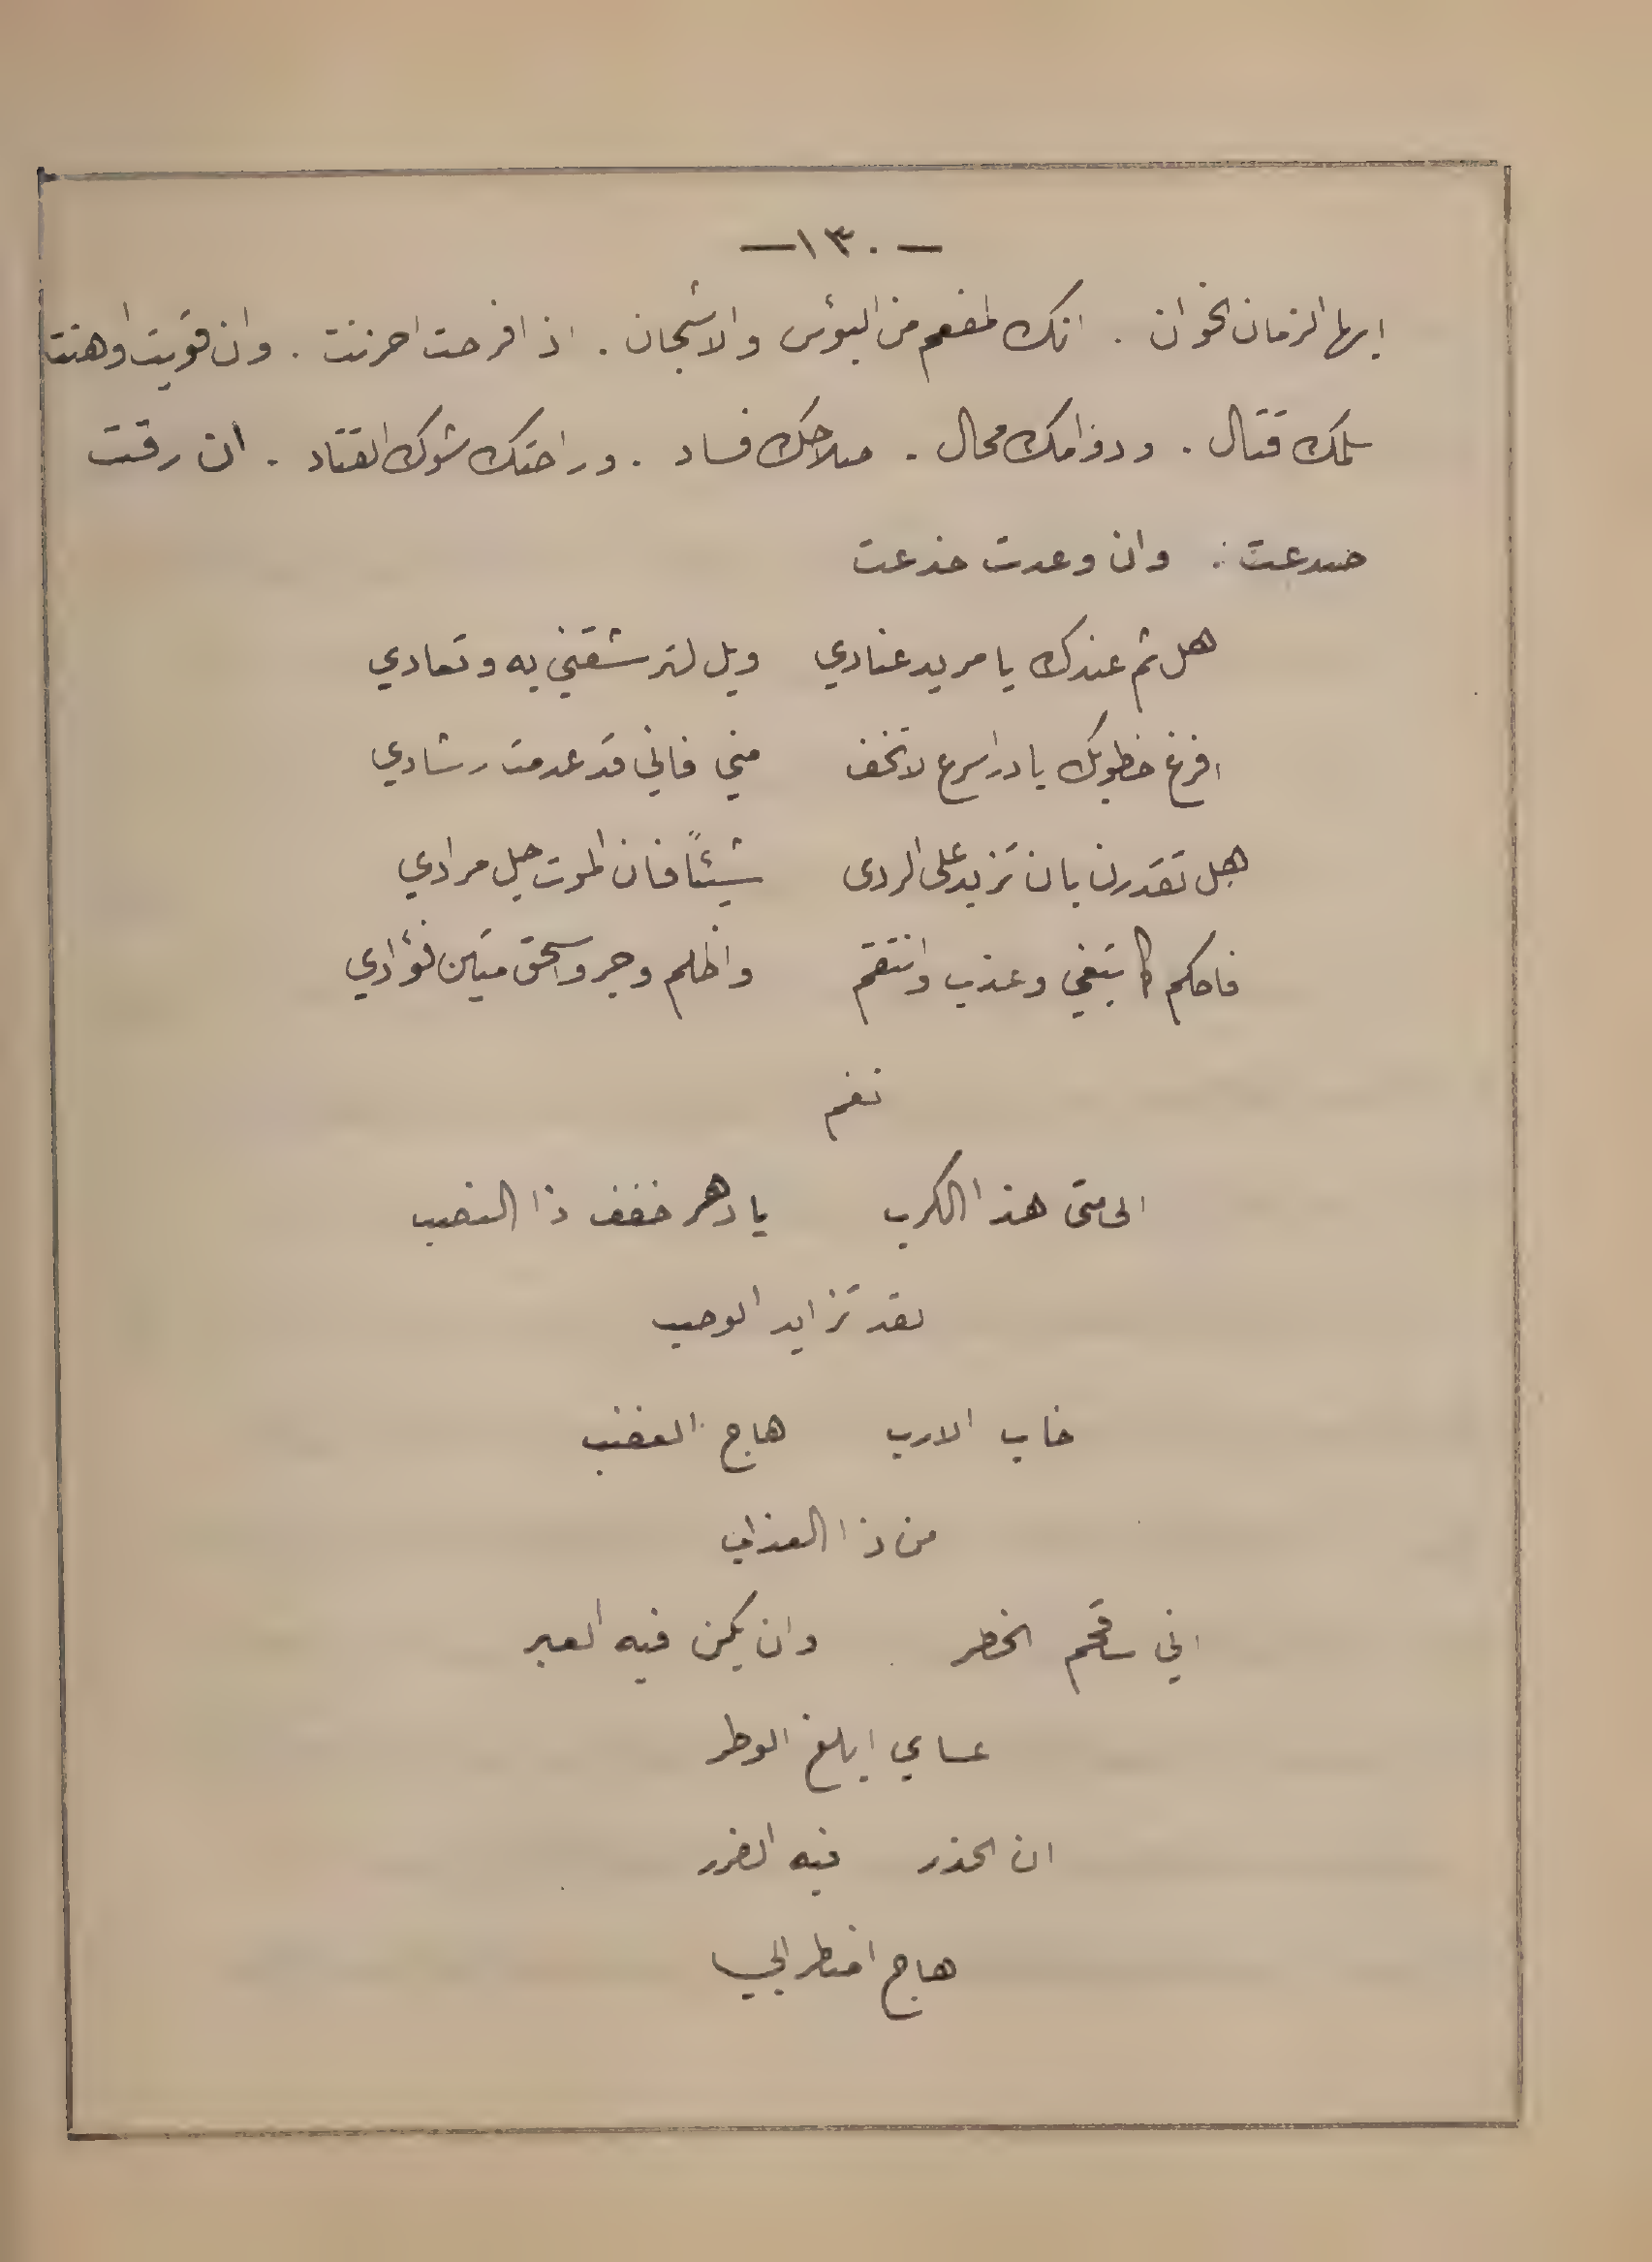 — ١٣٠ —
ايها الزمان الخوان . انك لمفعم من البؤس والاشجان . اذ افرحت احزنت . وان قويت اوهنت
سلمك قتال . ودوامك محال . صلاحك فساد . وراحتك شوك القتاد . ان رقت
صدعت . وان وعدت خدعت
هل ثم عندك يا مريد عنادي ويل لترشقني به وتعادي
افرغ خطوبك يا اسرع لا تخف مني فاني قد عدمت رشادي
هل تقدرن بان تزيد على الردى شيئاً فان الموت جل مرادي
فاحكم كما تبتغي وعذب وانتقم واظلم وجر واسحق متين فؤادي
نغم
الى متى هذا الكرب يا دهر خفف ذا النصب
لقد تزايد الوصب
خاب الارب هاج الغضب
من ذا العذاب
اني ساقحم الخطر وان يكن فيه العبر
عساي ابلغ الوطر
ان الحذر فيه الضرر
هاج اضطرابي